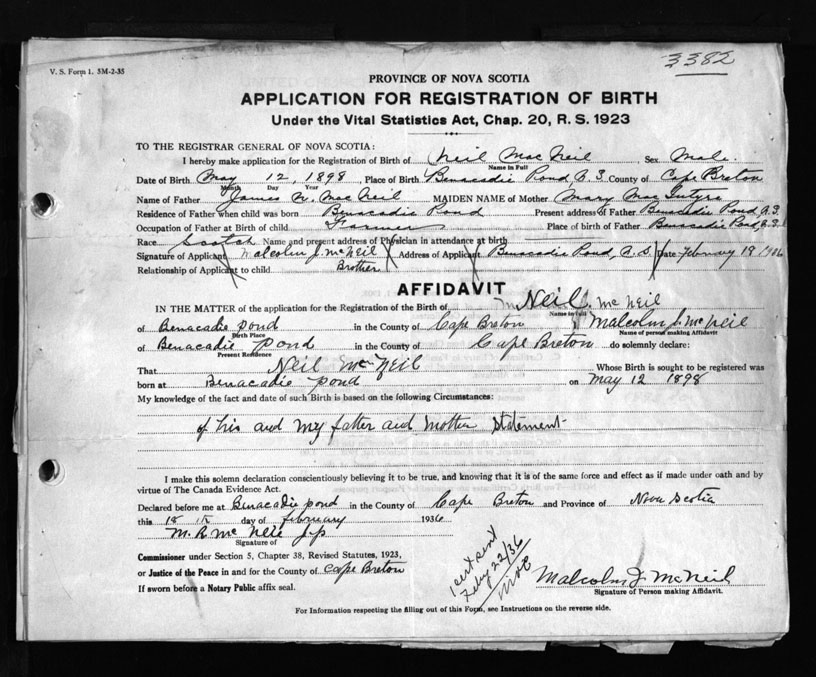 3382
V. S. Form 1. 5M-2-35
PROVINCE OF NOVA SCOTIA
APPLICATION FOR REGISTRATION OF BIRTH
Under the Vital Statistics Act, Chap. 20, R. S. 1923
TO THE REGISTRAR GENERAL OF NOVA SCOTIA:
I hereby make application for the Registration of Birth of Neil MacNeil Sex Male.
Name in Full
Date of Birth May 12, 1898 Place of Birth Benacadie Pond County of Cape Breton
Month Day Year
Name of Father James N. MacNeil MAIDEN NAME of Mother Mary MacIntyre
Residence of Father when child was born Benacadie Pond Present address of Father Benacadie Pond
Occupation of Father at Birth of child Farmer Place of birth of Father Benacadie Pond
Race Scotch Name and present address of Physician in attendance at birth
Signature of Applicant Malcolm J. McNeil Address of Applicant Benacadie Pond, Date February 18 1936
Relationship of Applicant to child Brother
AFFIDAVIT
IN THE MATTER of the application for the Registration of the Birth of Neil McNeil
Name in Full
of Benacadie pond in the County of Cape Breton I Malcolm J. McNeil
Birth Place Name of person making Affidavit
of Benacadie pond in the County of Cape Breton do solemnly declare:
Present Residence
That Neil McNeil Whose Birth is sought to be registered was
born at Benacadie pond on May 12 1898
My knowledge of the fact and date of such Birth is based on the following Circumstances:
of his and my father and mother statement
I make this solemn declaration conscientiously believing it to be true, and knowing that it is of the same force and effect as if made under oath and by
virtue of The Canada Evidence Act.
Declared before me at Benacadie pond in the County of Cape Breton and Province of Nova Scotia
this 18 day of February 1936
M. R. McNeil J.p
Signature of
Commissioner under Section 5, Chapter 38, Revised Statutes, 1923,
or Justice of the Peace in and for the County of Cape Breton
If sworn before a Notary Public affix seal.
1 cert sent
Feby 22/36
Malcolm J. McNeil
Signature of Person making Affidavit.
For Information respecting the filling out of this Form, see Instructions on the reverse side.